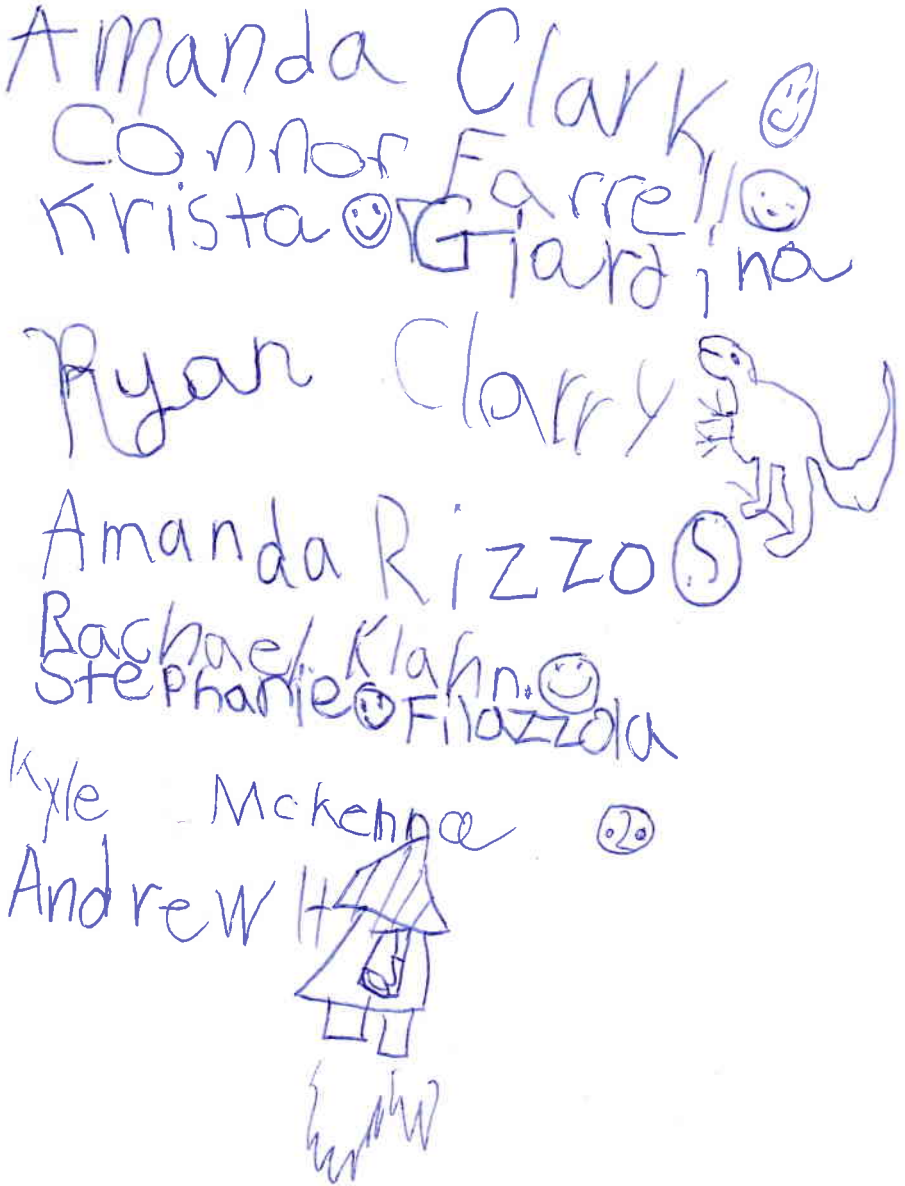 Amanda Clark
Connor Farrell
Krista Giardina
Ryan Clarry
Amanda Rizzo
Rachael Klahn.
Stephanie Filazzola
Kyle Mckenna
Andrew H